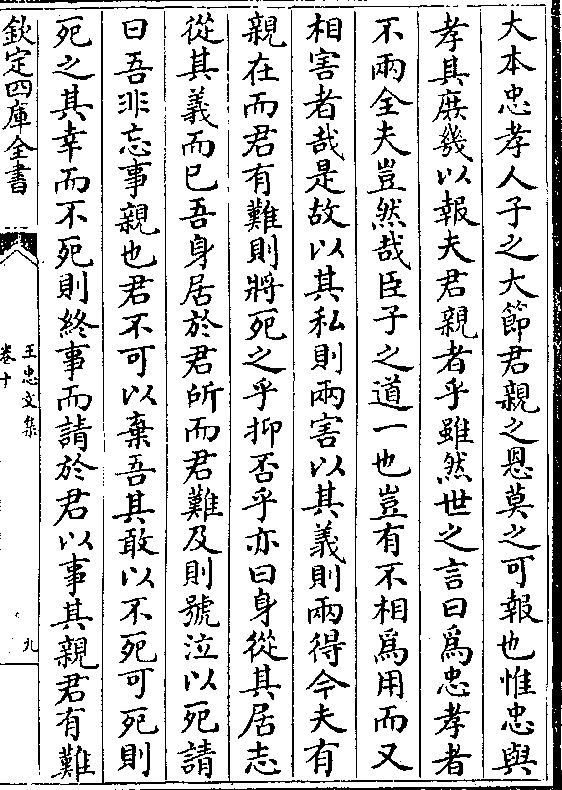 大本忠孝人子之大節君親之恩莫之可報也惟忠與
孝其庶幾以報夫君親者乎雖然世之言曰爲忠孝者
不兩全夫豈然哉臣子之道一也豈有不相爲用而又
相害者哉是故以其私則兩害以其義則兩得今夫有
親在而君有難則將死之乎抑否乎亦曰身從其居志
從其義而已吾身居於君所而君難及則號泣以死請
曰吾非忘事親也君不可以棄吾其敢以不死可死則
死之其幸而不死則終事而請於君以事其親君有難
欽定四庫全書
王忠文集
卷十
九